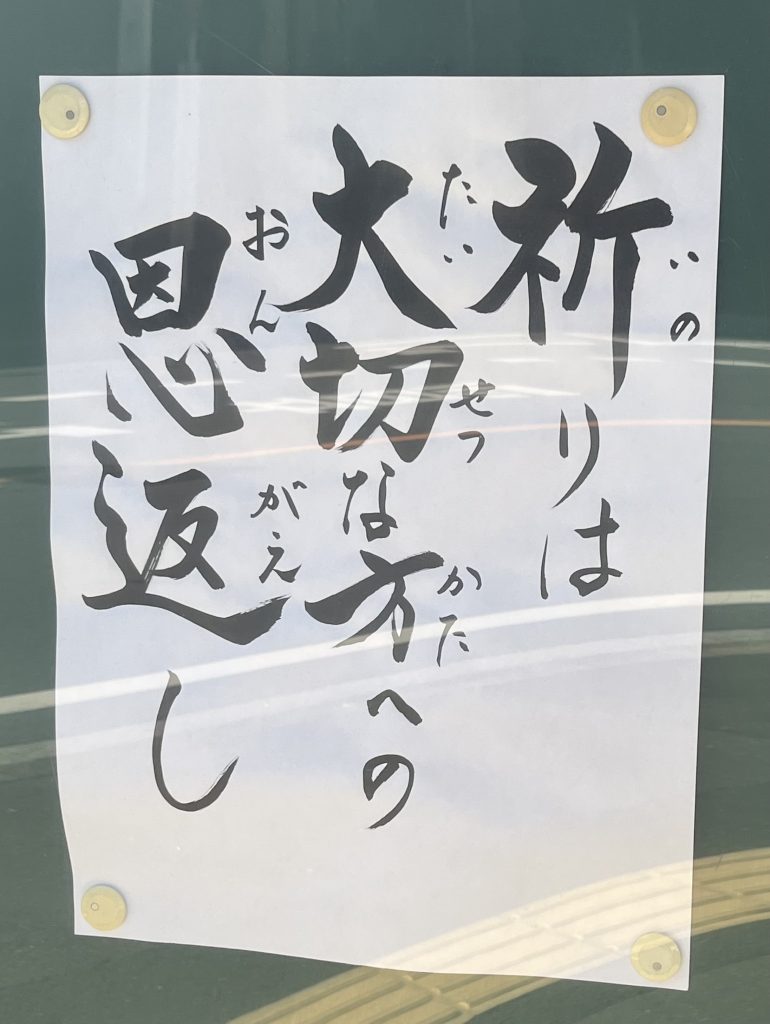 祈りは
いの
大切な方への
たいせつ かた
恩返し
おんがえ